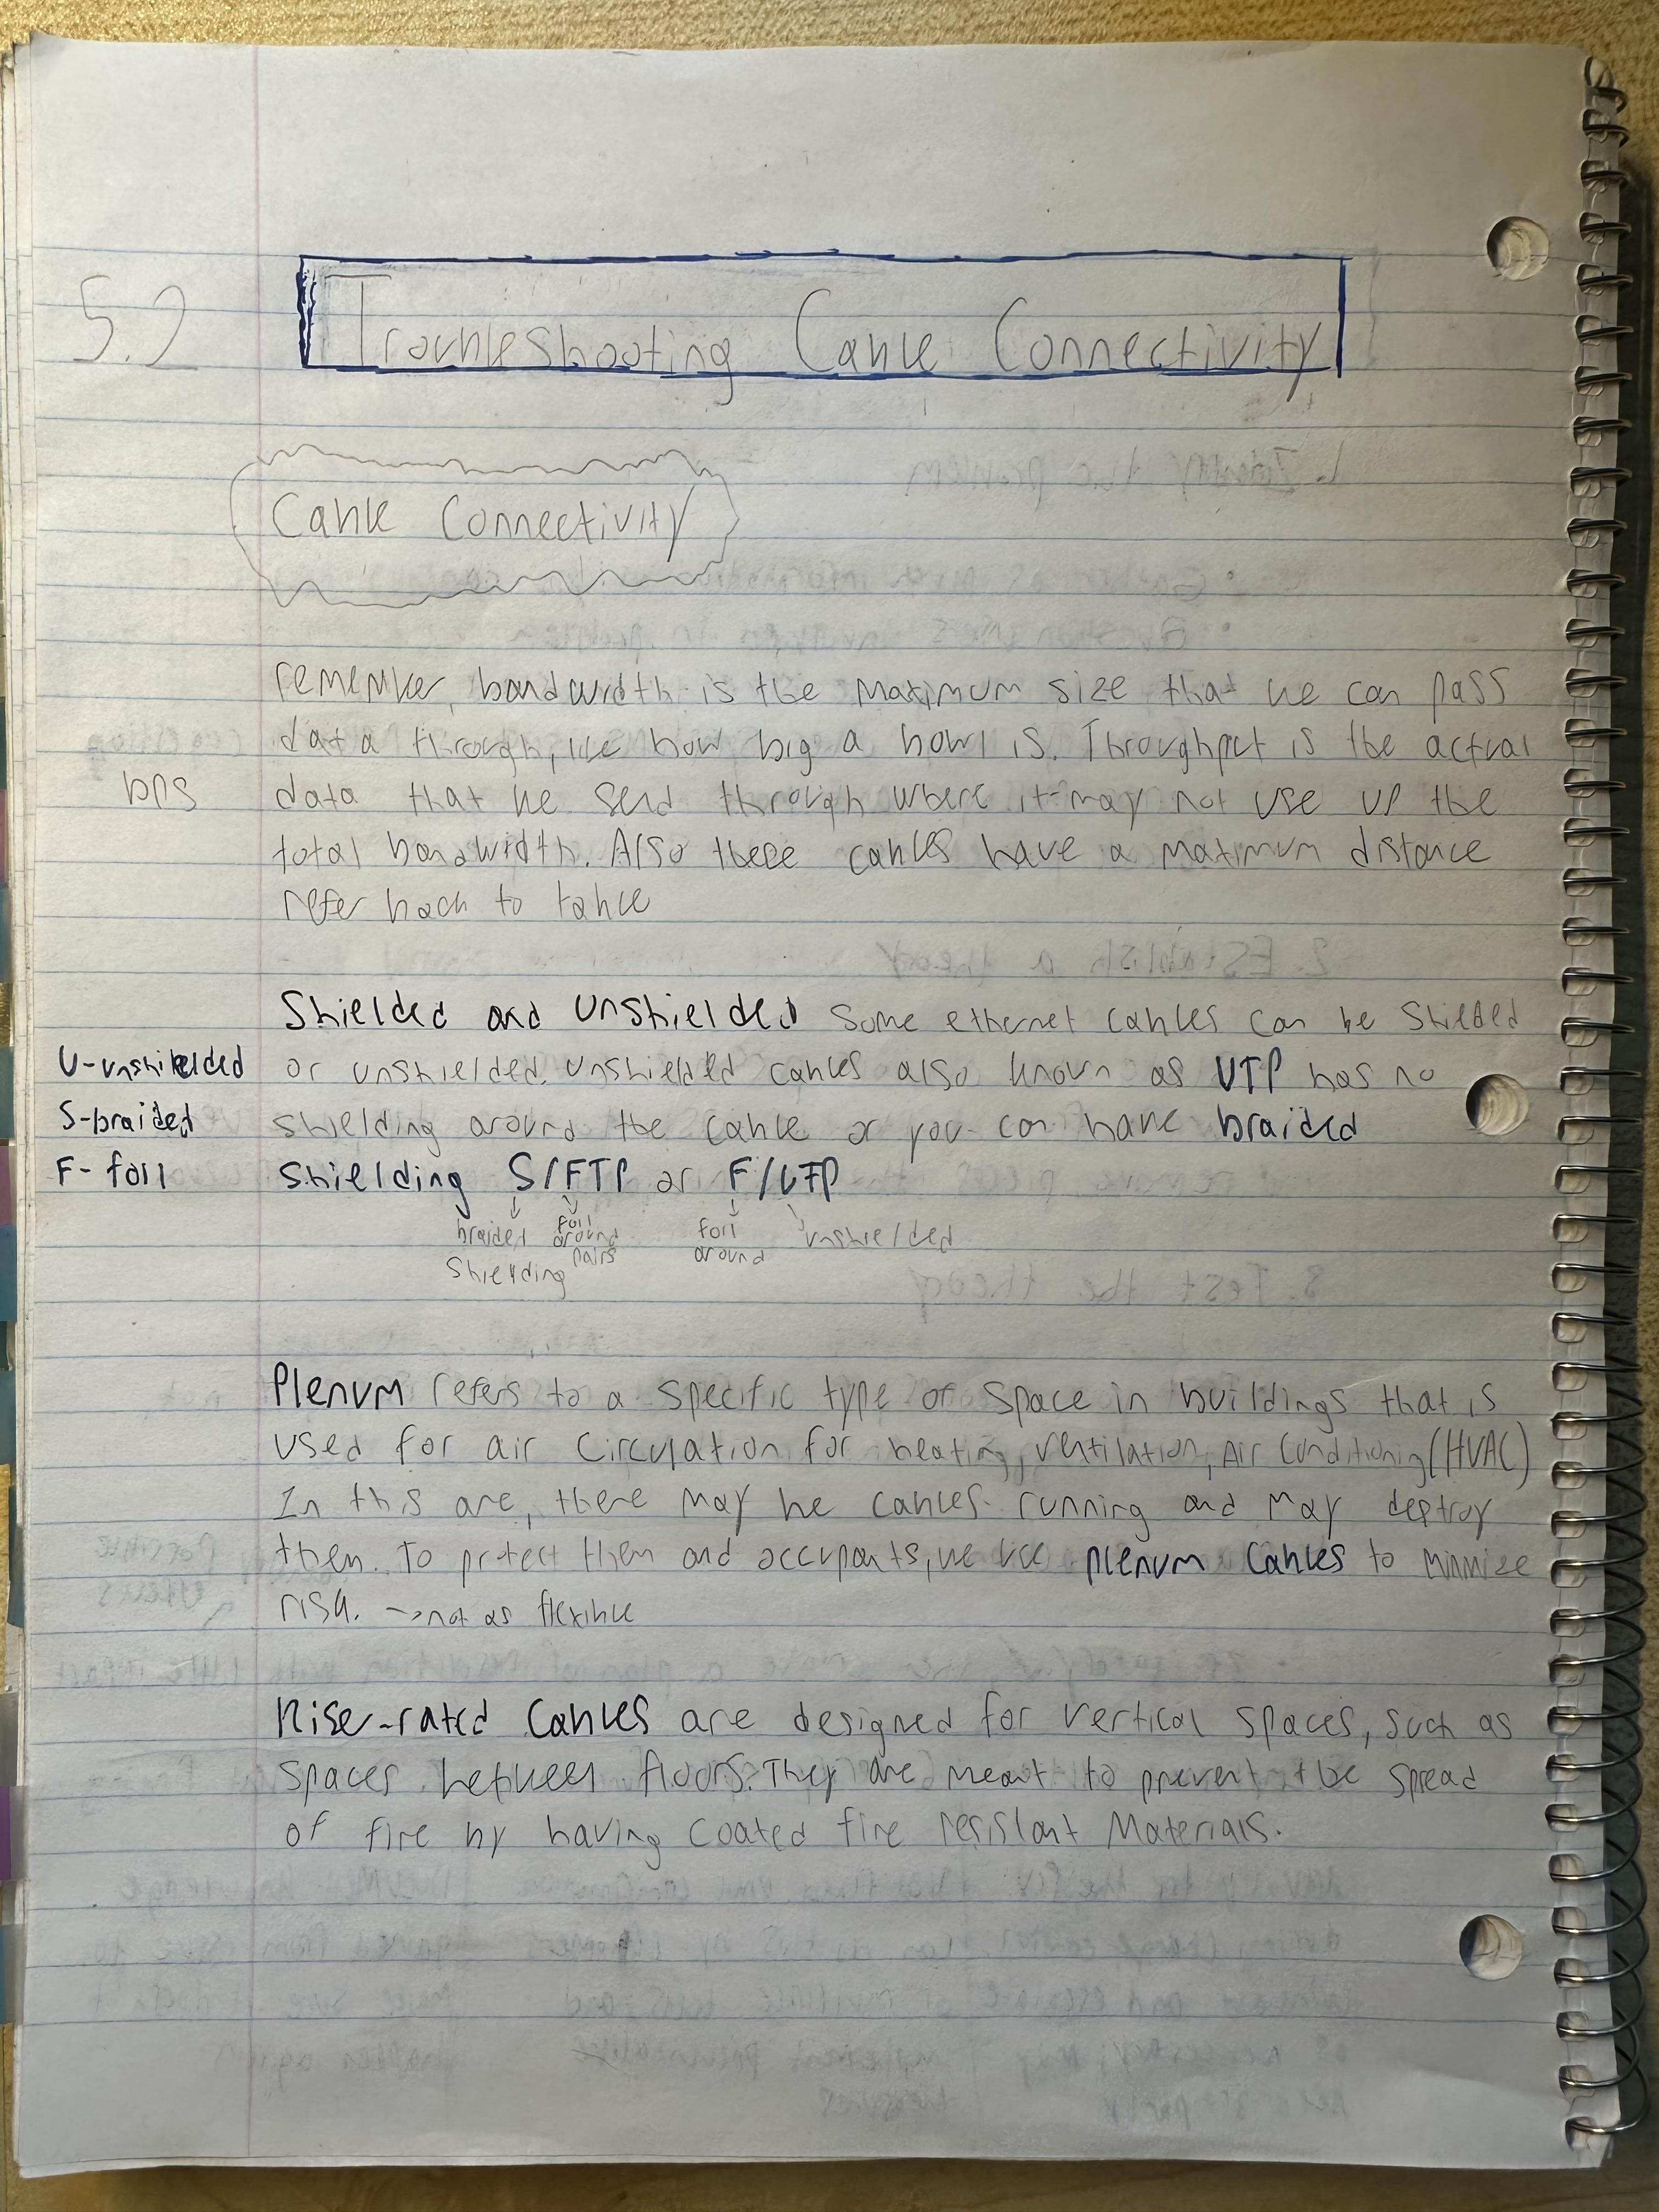 5.2 Troubleshooting Cable Connectivity
Cable Connectivity
remember, bandwidth is the maximum size that we can pass
data through, like how big a bowl is. Throughput is the actual
bps data that we send through where it may not use up the
total bandwidth. Also these cables have a maximum distance
refer back to table
Shielded and Unshielded some ethernet cables can be shielded
U-unshielded or unshielded. unshielded cables also known as UTP has no
S-braided shielding around the cable or you can have braided
F-foil shielding S/FTP or F/UTP
braided foil foil unshielded
shielding around around
pairs
Plenum refers to a specific type of space in buildings that is
used for air circulation for heating, ventilation, Air Conditioning (HVAC)
In this are, there may be cables running and may destroy
them. To protect them and occupants, we use plenum cables to minimize
risk. → not as flexible
Rise-rated Cables are designed for vertical spaces, such as
spaces between floors. They are meant to prevent the spread
of fire by having coated fire resistant materials.